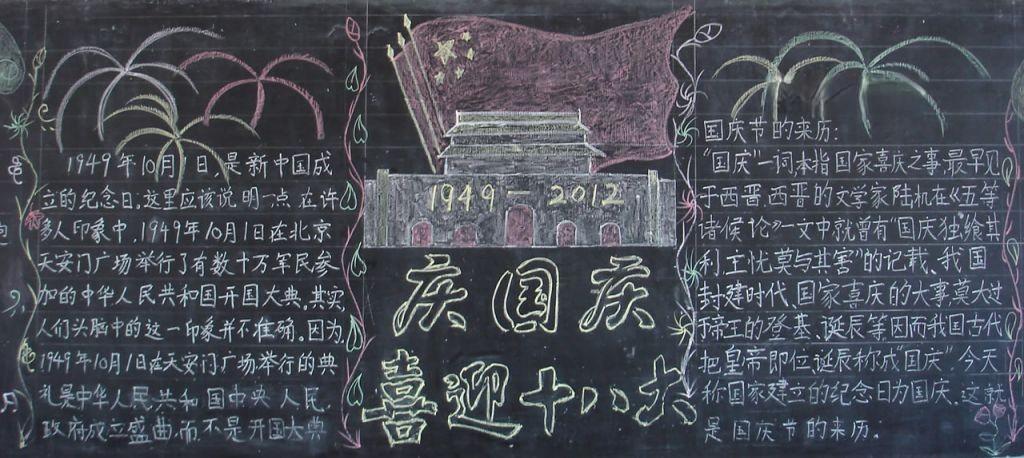 1949年10月1日,是新中国成
立的纪念日.这里应该说明一点.在许
多人印象中,1949年10月1日在北京
天安门广场举行了有数十万军民参
加的中华人民共和国开国大典.其实,
人们头脑中的这一印象并不准确。因为,
1949年10月1日在天安门广场举行的典
礼是中华人民共和国中央人民
政府成立盛典,而不是开国大典
1949-2012
庆国庆
喜迎十八大
国庆节的来历:
"国庆"一词,本指国家喜庆之事,最早见
于西晋.西晋的文学家陆机在《五等
诸侯论》一文中就曾有"国庆独飨其
利,主忧莫与其害"的记载、我国
封建时代、国家喜庆的大事莫大过
于帝王的登基、诞辰等.因而我国古代
把皇帝即位、诞辰称成"国庆".今天
称国家建立的纪念日为国庆.这就
是国庆节的来历。